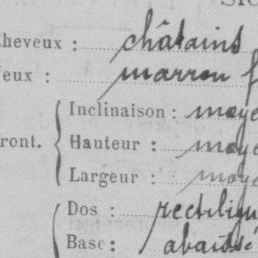 Cheveux : châtains
Yeux : marron f
Inclinaison : moye
ront. Hauteur : moye
Largeur : moye
Dos : rectiligne
Base : abaissé